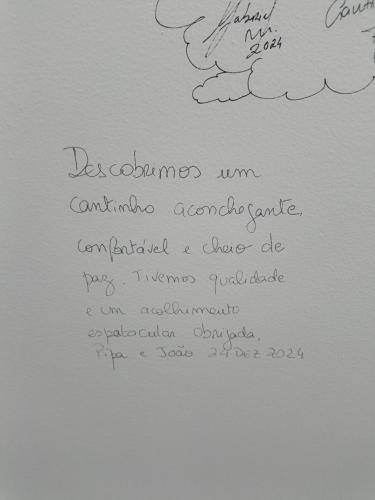 Gabriel
2024
Descobrimos um
cantinho aconchegante,
confortável e cheio de
paz. Tivemos qualidade
e um acolhimento
espatacular. Obrigada,
Pipa e João 24 DEZ 2024